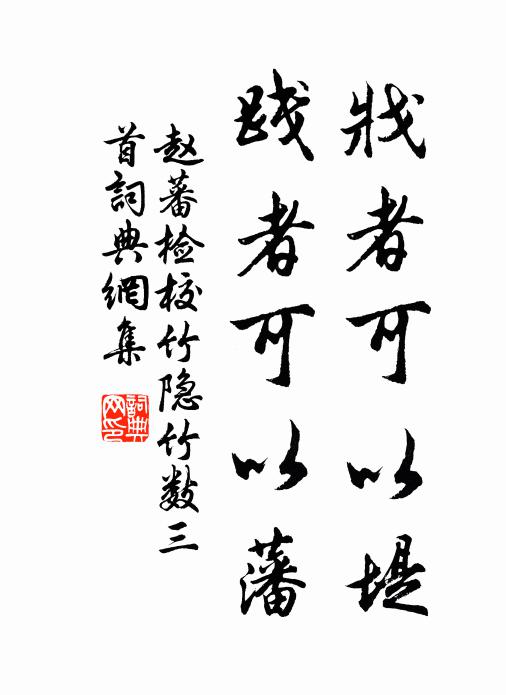 戕者可以堤
践者可以藩
赵蕃检校竹隐竹数三
首詞典網集
詞典网印